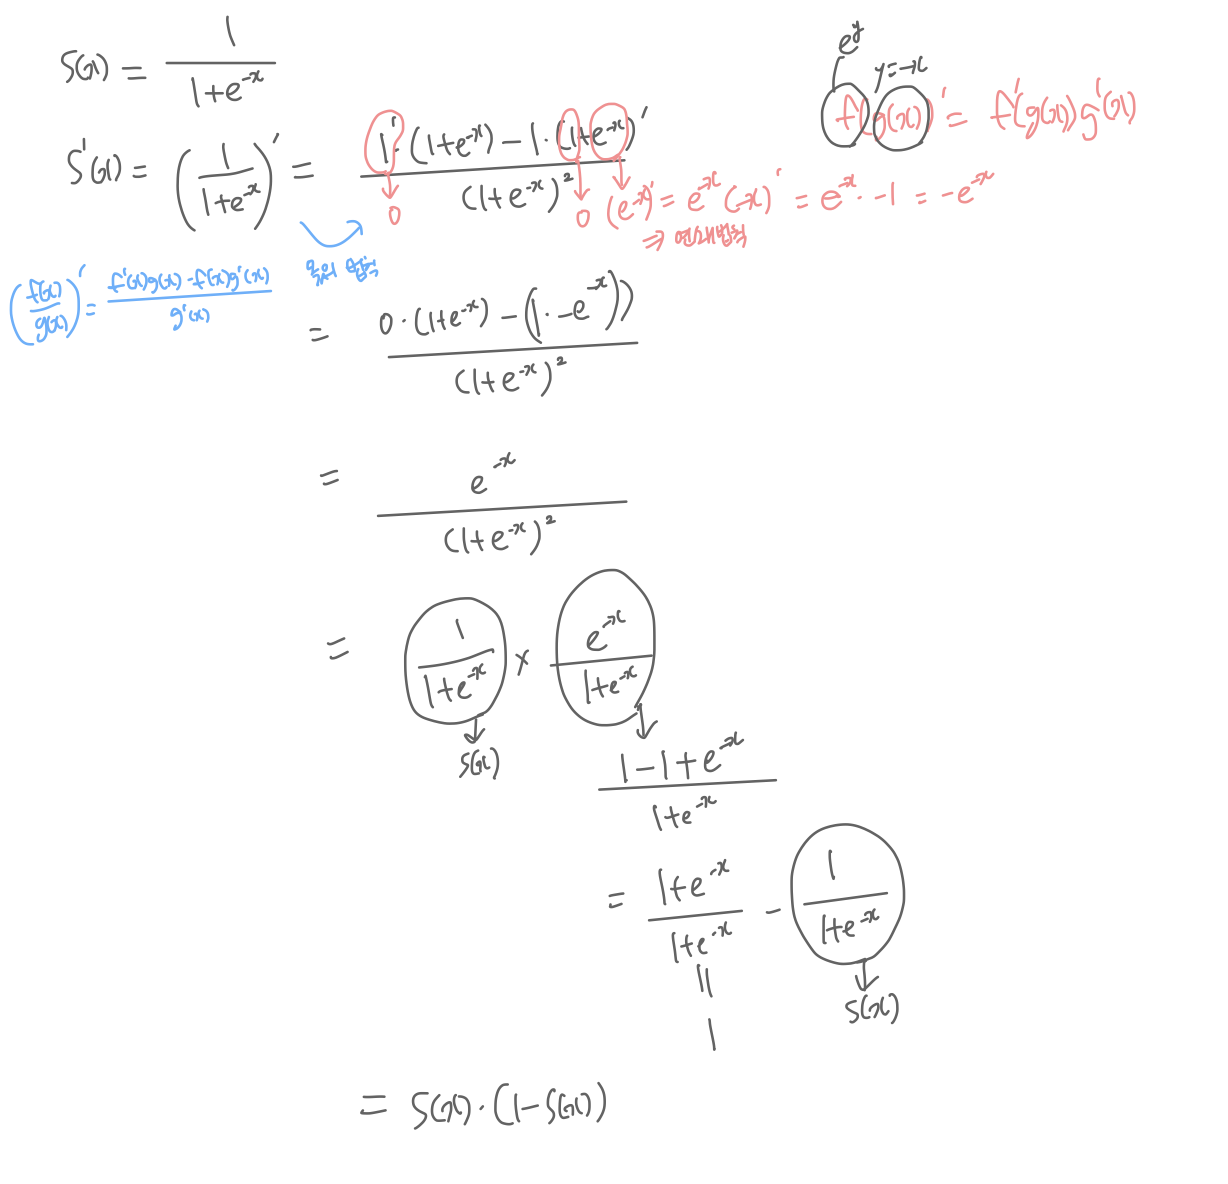 S(x) = 1 / (1+e^{-x})
e^y
y=-x
f(g(x))' = f'(g(x))g'(x)
S'(x) = (1 / (1+e^{-x}))' = (1'·(1+e^{-x}) - 1·(1+e^{-x})') / (1+e^{-x})^2
0 0 (e^{-x})' = e^{-x}(-x)' = e^{-x}·-1 = -e^{-x}
⇒ 연쇄법칙
(f(x)/g(x))' = (f'(x)g(x) - f(x)g'(x)) / g'(x)
몫의 법칙
= (0·(1+e^{-x}) - (1·-e^{-x})) / (1+e^{-x})^2
= e^{-x} / (1+e^{-x})^2
= 1 / (1+e^{-x}) × e^{-x} / (1+e^{-x})
S(x)
(1-1+e^{-x}) / (1+e^{-x})
= (1+e^{-x}) / (1+e^{-x}) - 1 / (1+e^{-x})
= 1
S(x)
= S(x)·(1-S(x))